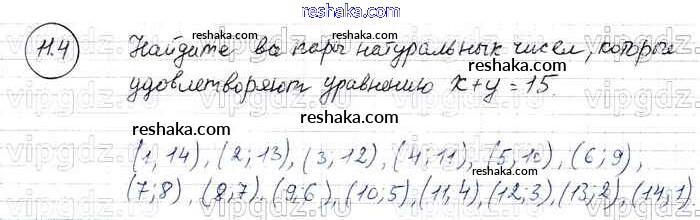 reshaka.com
11.4 Найдите все пары натуральных чисел, которые
reshaka.com
удовлетворяют уравнению x+y=15.
reshaka.com
reshaka.com
reshaka.com
(1; 14), (2; 13), (3; 12), (4; 11), (5; 10), (6; 9),
reshaka.com
(7; 8), (8; 7), (9; 6), (10; 5), (11, 4), (12; 3), (13; 2), (14; 1)
reshaka.com
reshaka.com